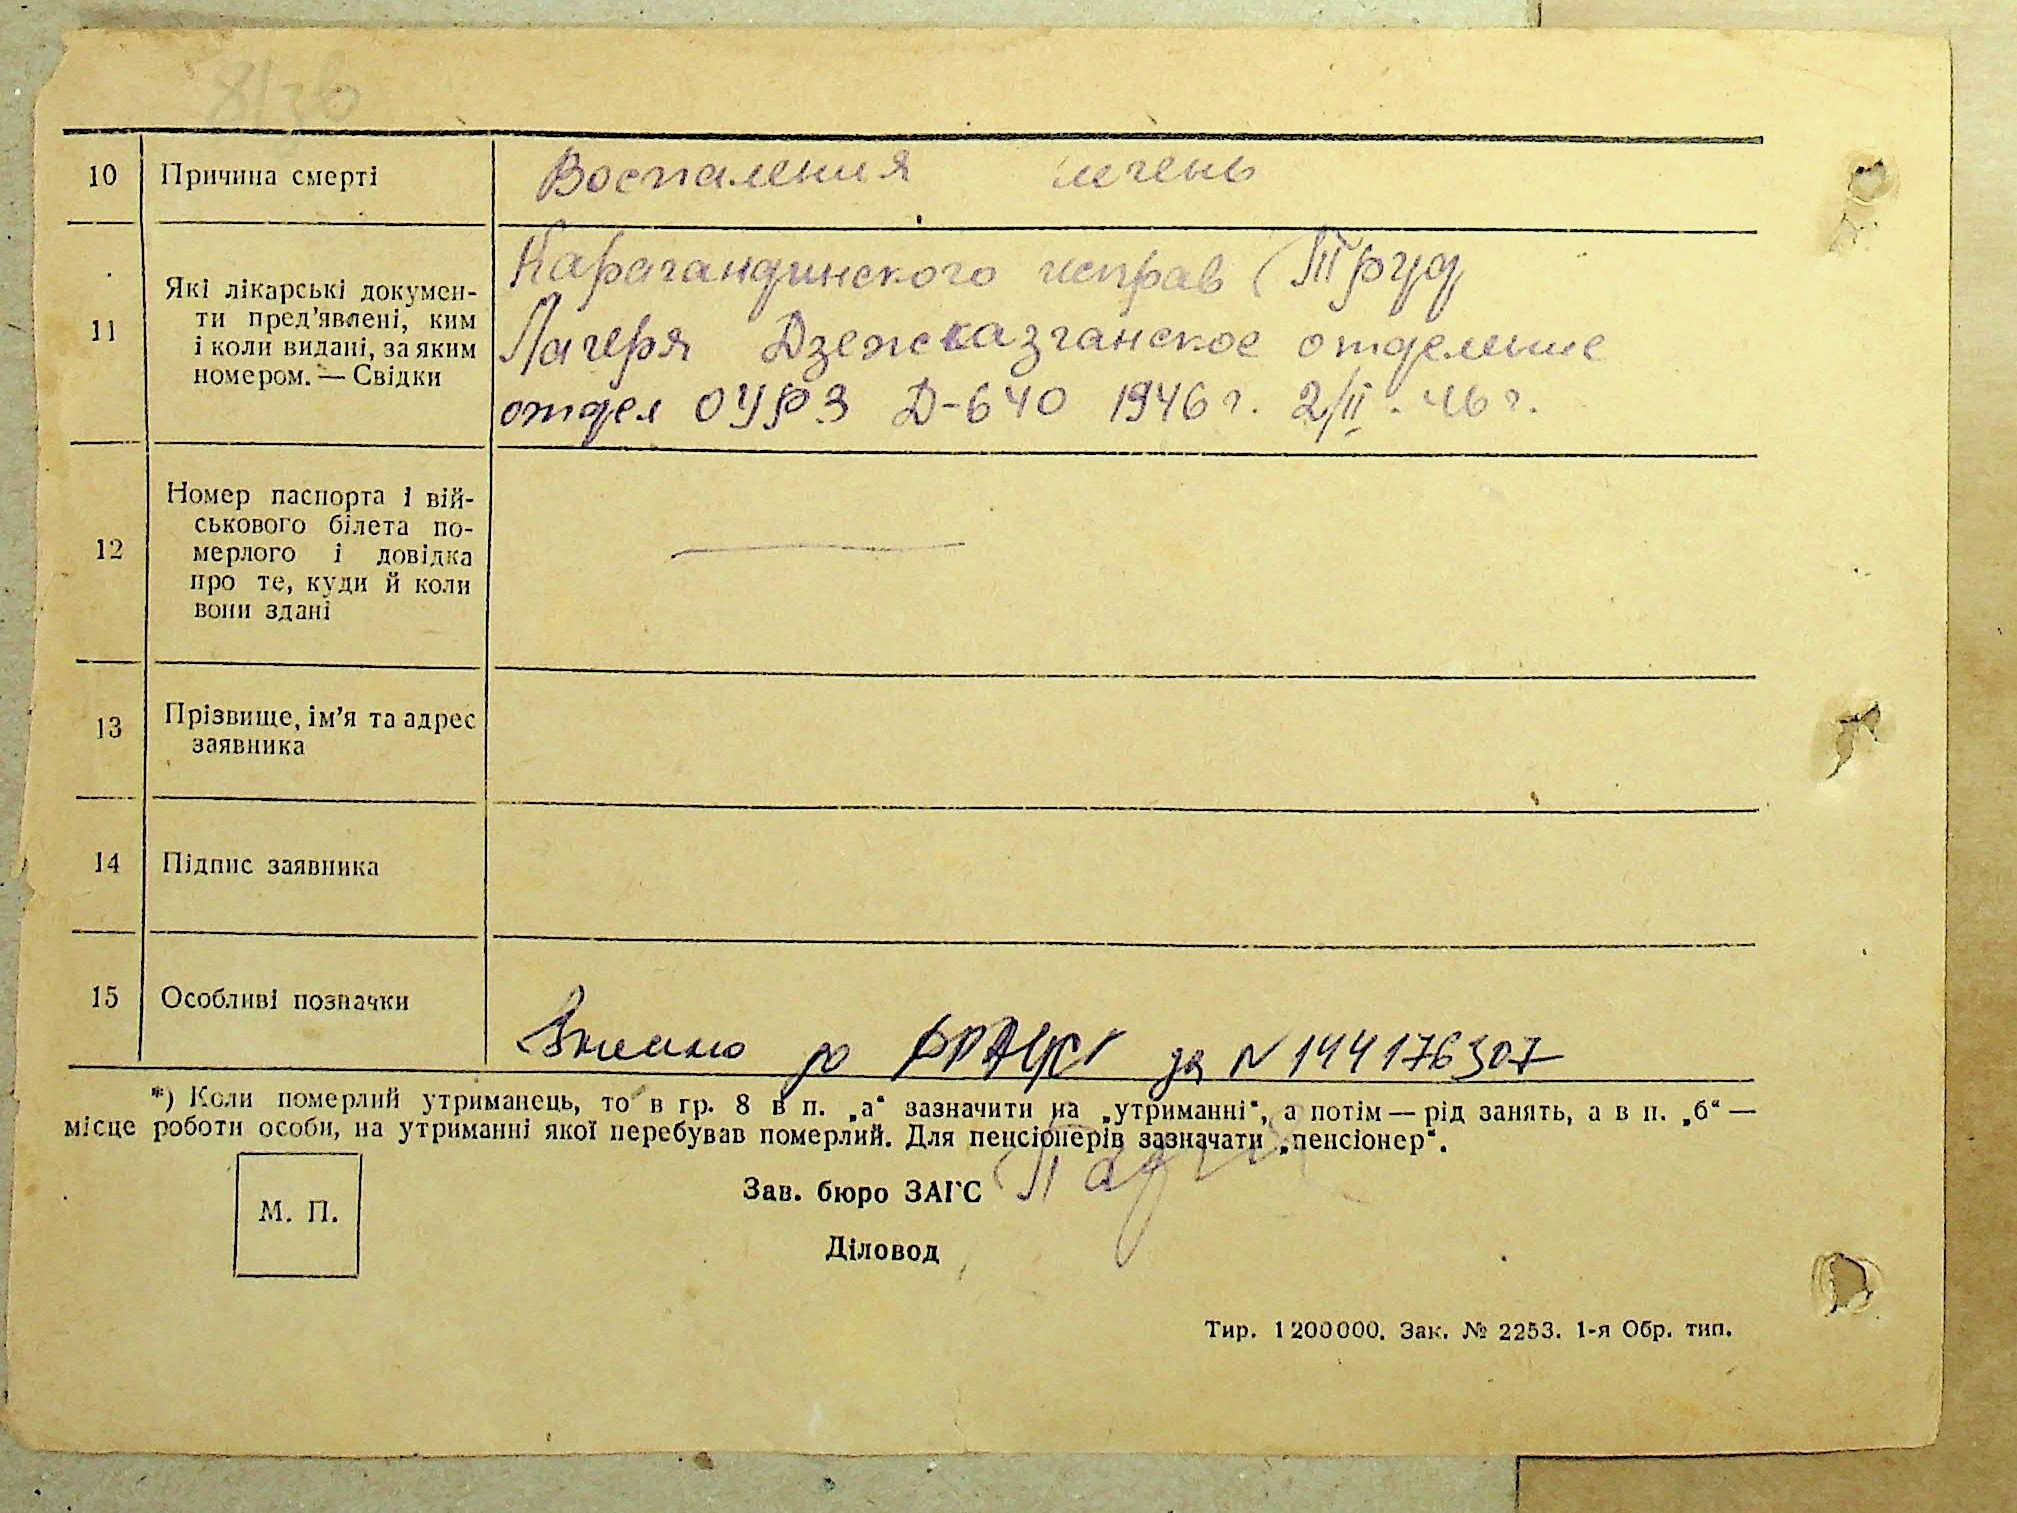 10 Причина смерті Воспаления печень
11 Які лікарські докумен-
ти пред'явлені, ким
і коли видані, за яким
номером. — Свідки
Карагандинского исправ Труд
Лагеря Дзежказганское отделение
отдел ОУРЗ Д-640 1946 г. 2/II. 46 г.
12 Номер паспорта і вій-
ськового білета по-
мерлого і довідка
про те, куди й коли
вони здані
13 Прізвище, ім'я та адрес
заявника
14 Підпис заявника
15 Особливі позначки
Внесено до ДРАЦСГ за N 144176307
*) Коли померлий утриманець, то в гр. 8 в п. „а“ зазначити на „утриманні“, а потім — рід занять, а в п. „б“ —
місце роботи особи, на утриманні якої перебував померлий. Для пенсіонерів зазначати „пенсіонер“.
М. П.
Зав. бюро ЗАГС
Діловод
Тир. 1200000. Зак. № 2253. 1-я Обр. тип.